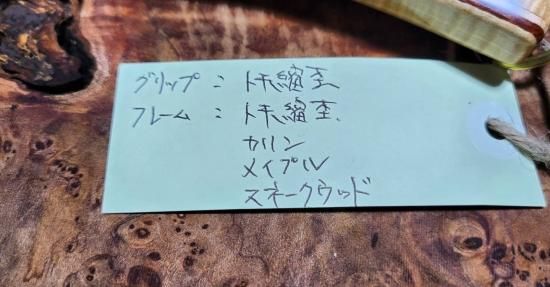 グリップ：トチ縮杢
フレーム：トチ縮杢
カリン
メイプル
スネークウッド